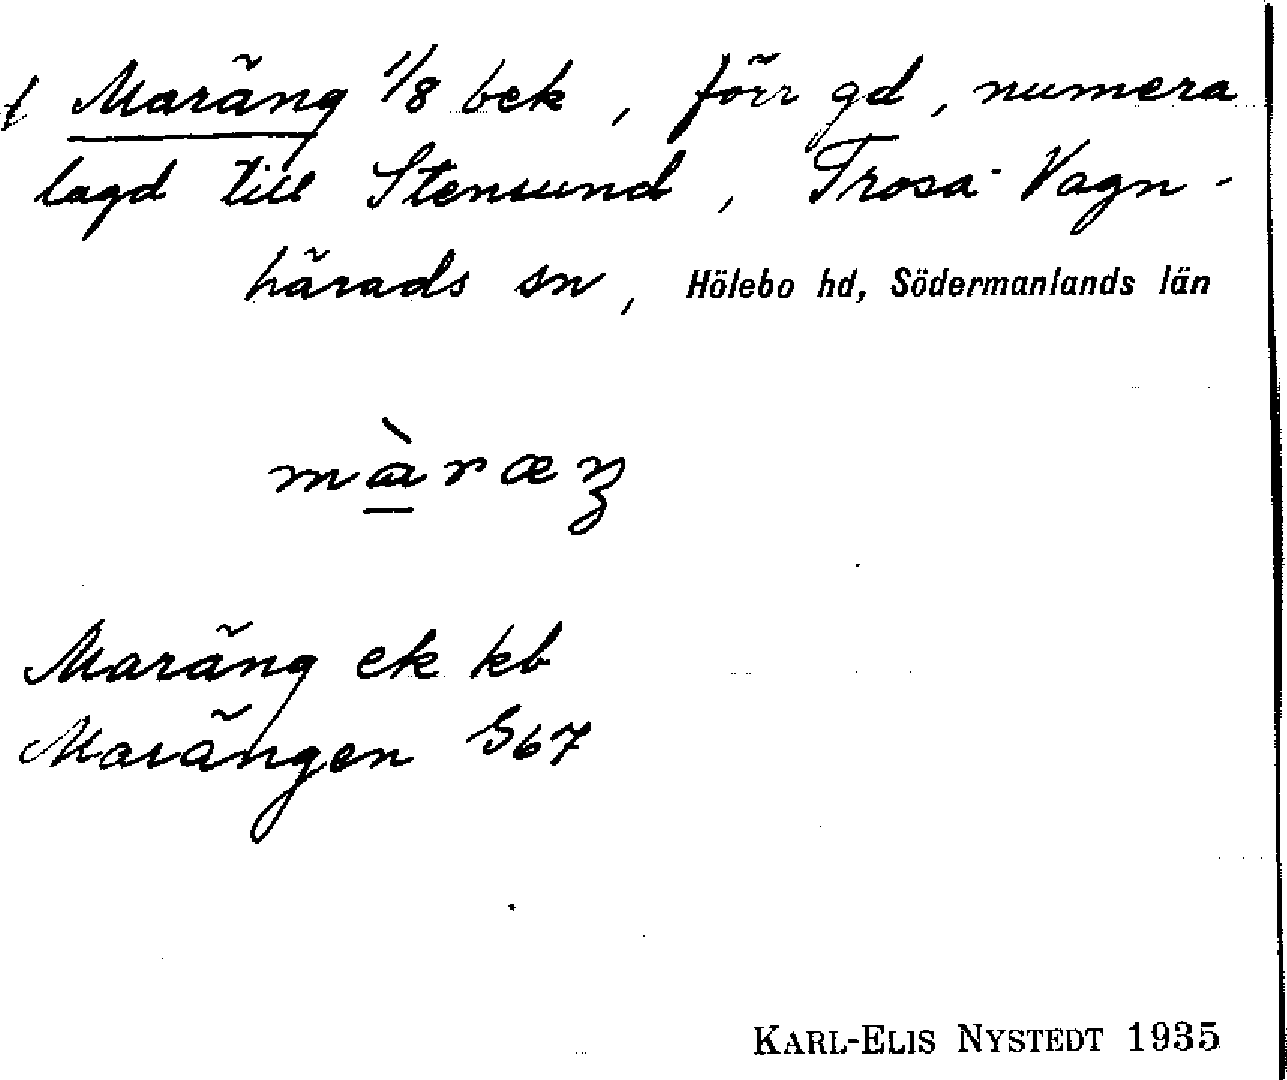 † Maräng 1/8 bek, förr gd, numera
lagd till Stensund, Trosa-Vagn-
härads sn, Hölebo hd, Södermanlands län
màræŋ
Maräng ek kb
Marängen G67
KARL-ELIS NYSTEDT 1935